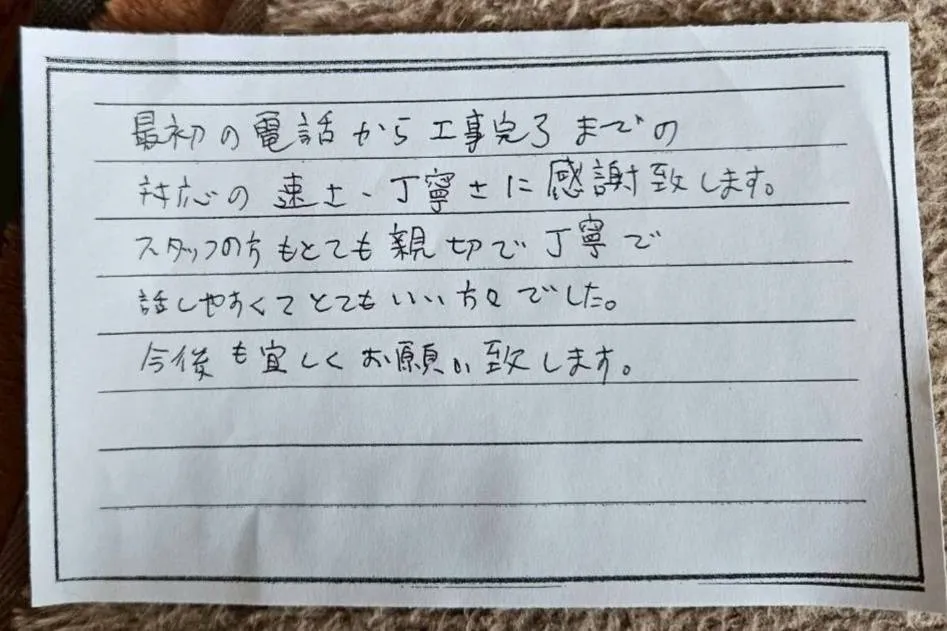 最初の電話から工事完了までの
対応の速さ、丁寧さに感謝致します。
スタッフの方もとても親切で丁寧で
話しやすくてとてもいい方々でした。
今後も宜しくお願い致します。